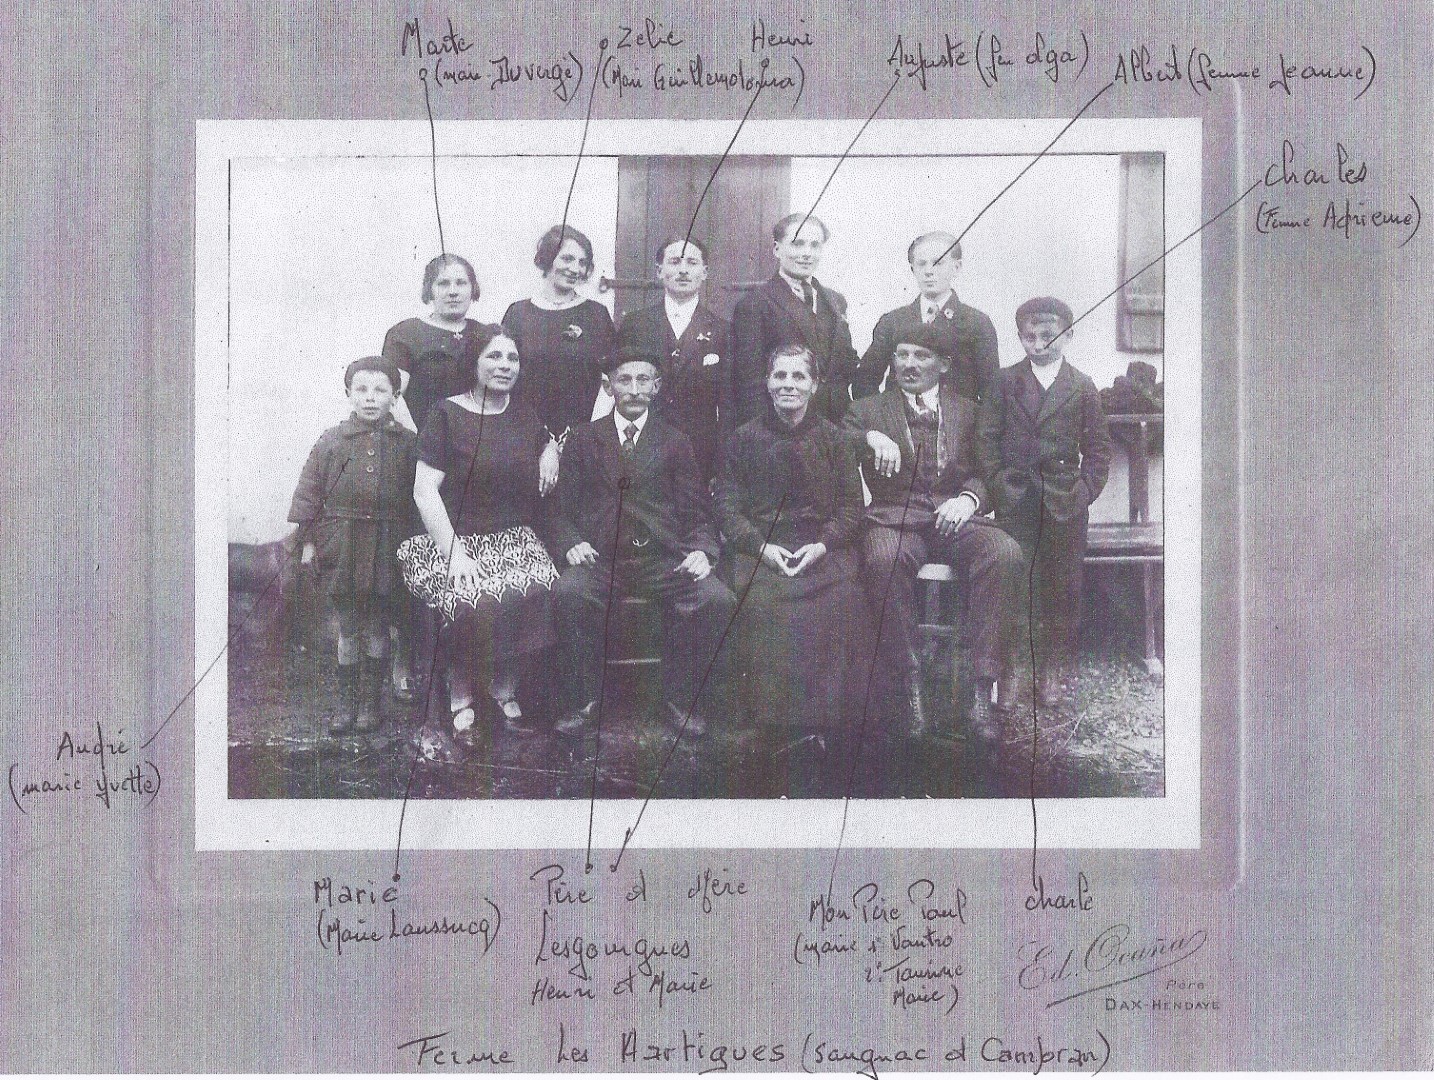 Marte
(mari Duvergé)
Zelie
(Mari Guillemotonia)
Henri
Auguste (fem Olga)
Albert (femme Jeanne)
Charles
(Femme Adrienne)
André
(marie Yvette)
Marie
(Marie Laussucq)
Père et Mère
Lesgourgues
Henri et Marie
Mon Père Paul
(marié 1°
2°
Marie)
charle
Ed. Ocaña
DAX-HENDAYE
Ferme Les Artigues (Saugnac et Cambran)